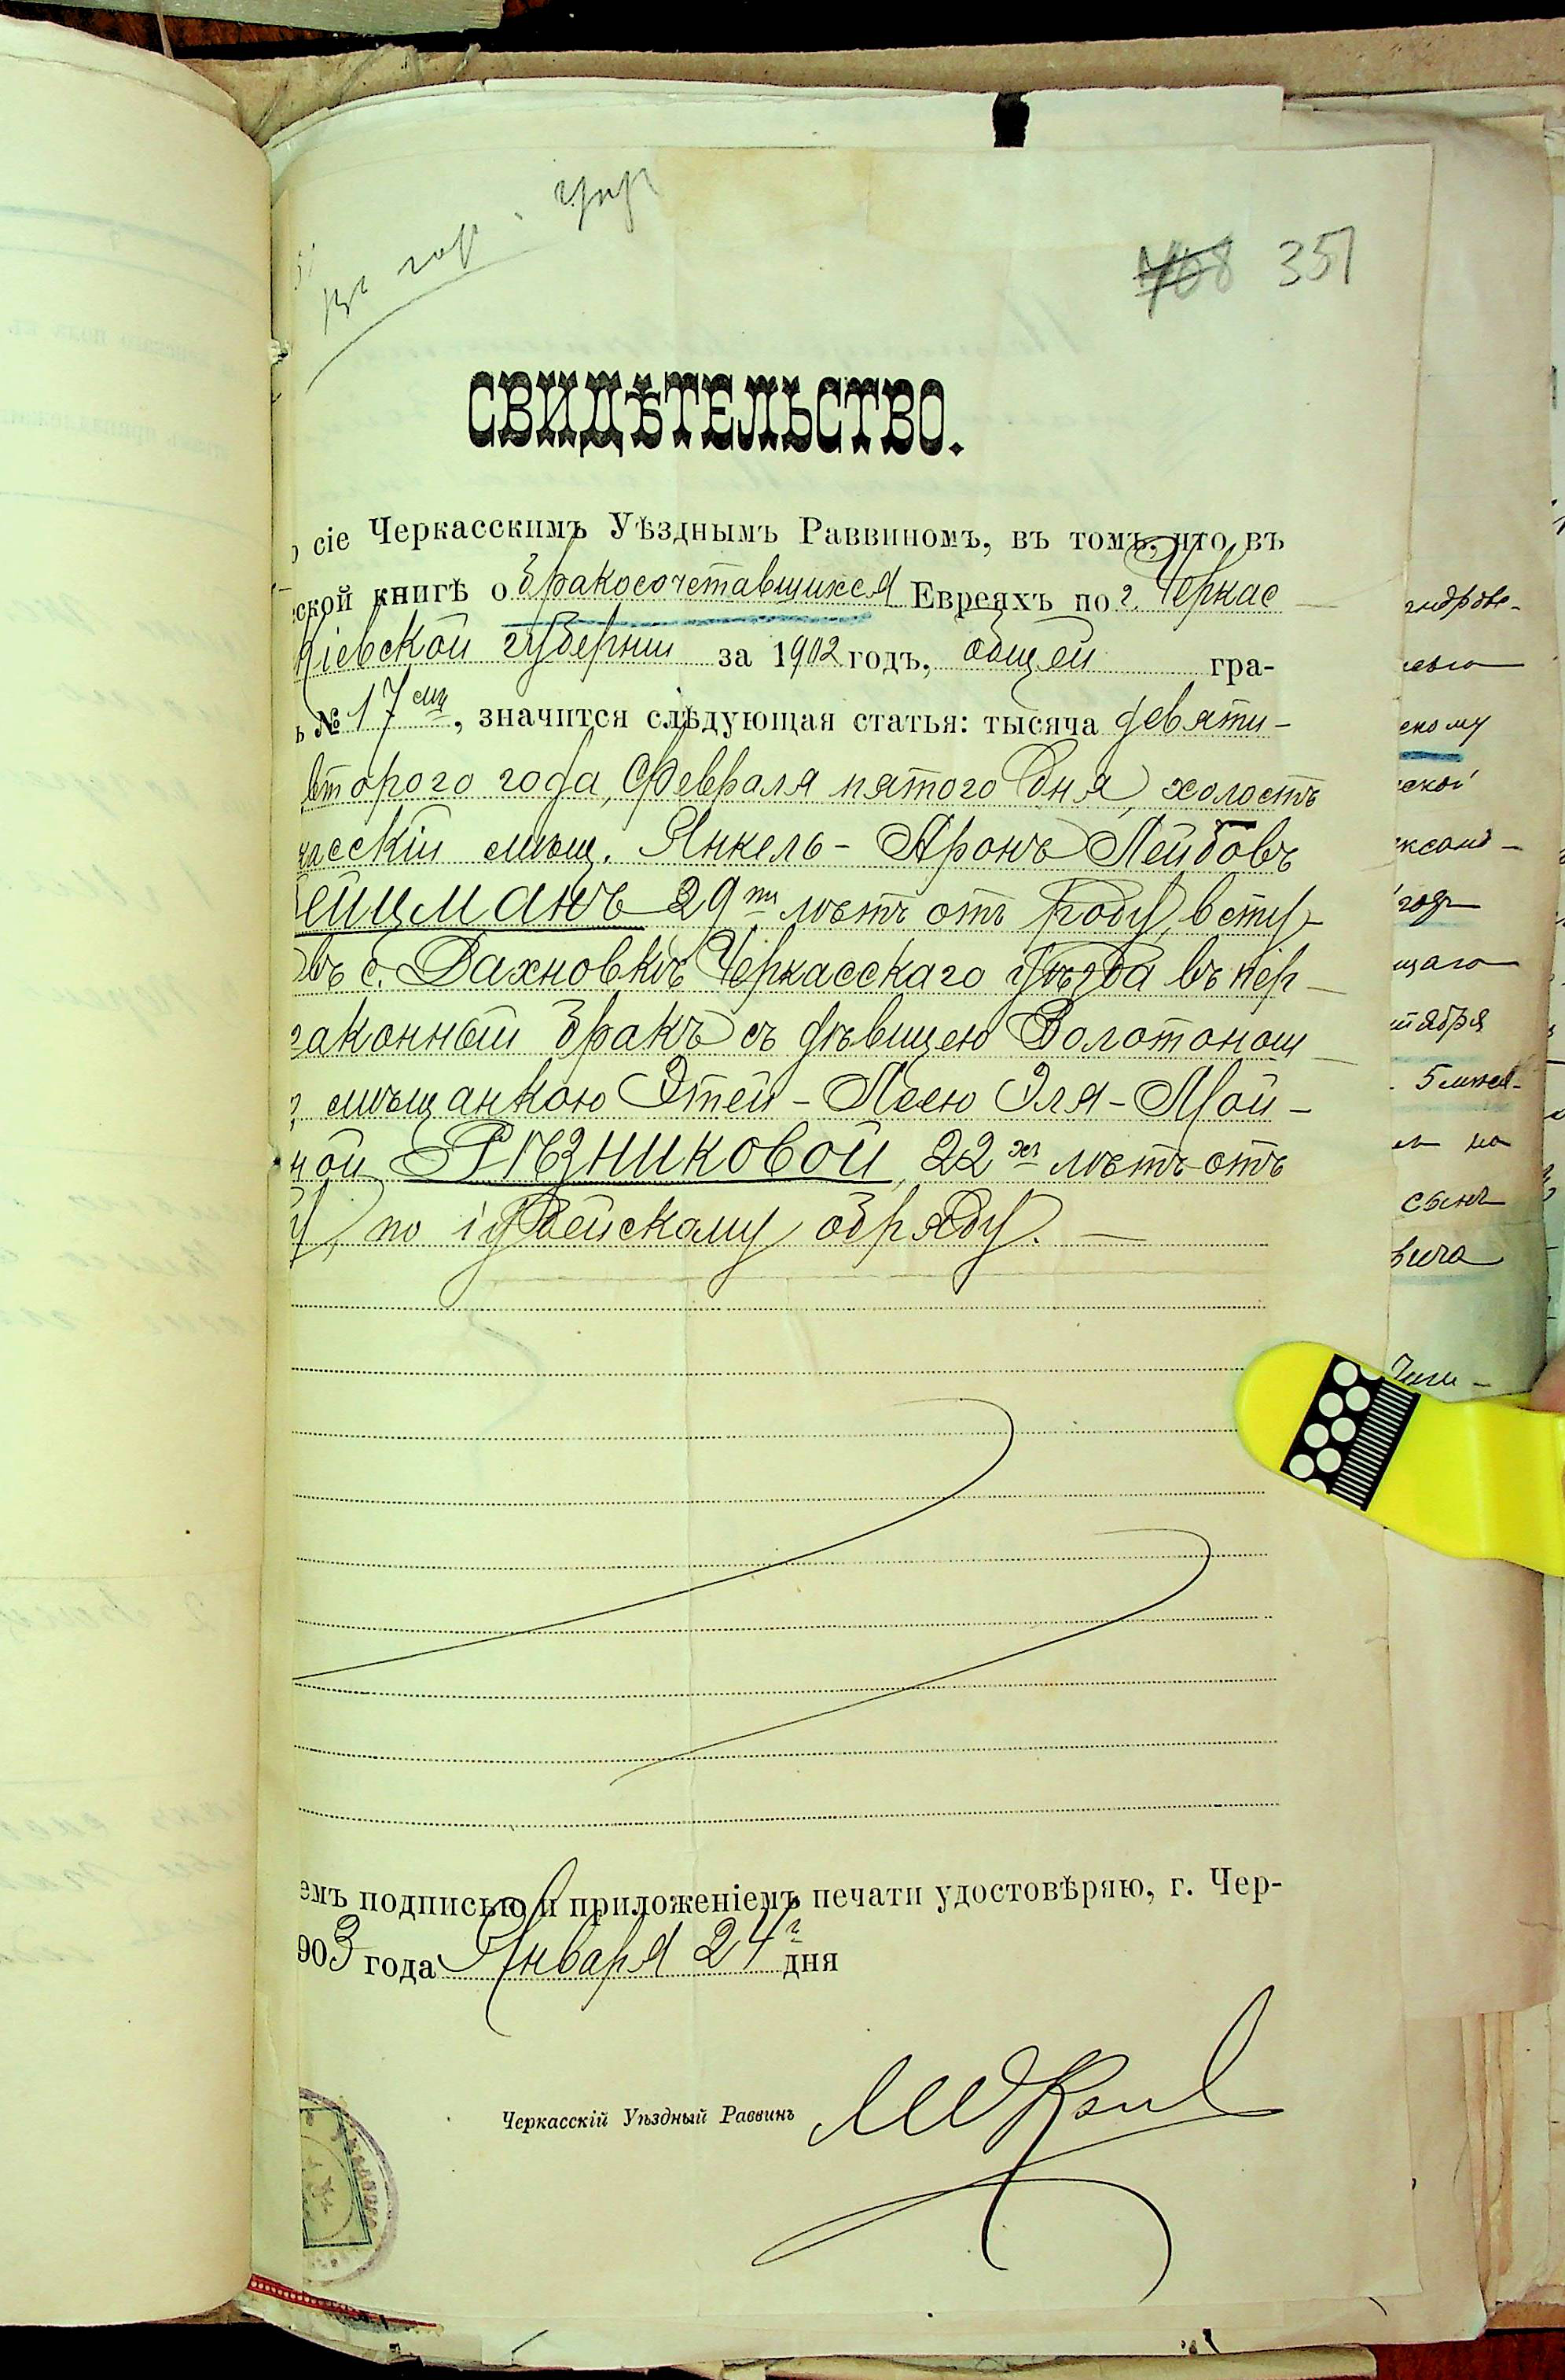 708 351
СВИДѢТЕЛЬСТВО.
сіе Черкасскимъ Уѣзднымъ Раввиномъ, въ томъ, что въ
ской книгѣ о бракосочетавшихся Евреяхъ по г. Черкас
Кіевской губерніи за 1902 годъ, общей гра-
ъ № 17 смъ, значится слѣдующая статья: тысяча девяти-
второго года, Февраля пятого дня, холостъ
касскій мѣщ. Янкель-Аронъ Лейбовъ
ейцманъ 29 ти лѣтъ отъ роду, всту-
въ с. Дахновкѣ Черкасскаго уѣзда въ пер-
законный бракъ съ дѣвицею Золотонош
мѣщанкою Этей-Леею Эля-Мой-
ной Рѣзниковой, 22 хъ лѣтъ отъ
у, по іудейскому обряду. —
емъ подписью и приложеніемъ печати удостовѣряю, г. Чер-
903 года Января 24 г дня
Черкасскій Уѣздный Раввинъ
скому
ской
ксанд-
годъ
щаго
тября
5 
на
сынъ
вича